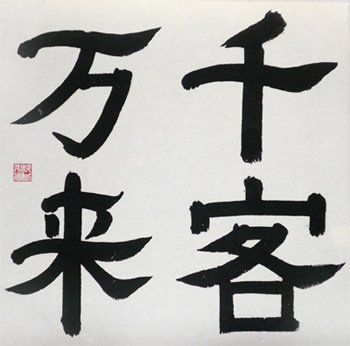 千客
万来